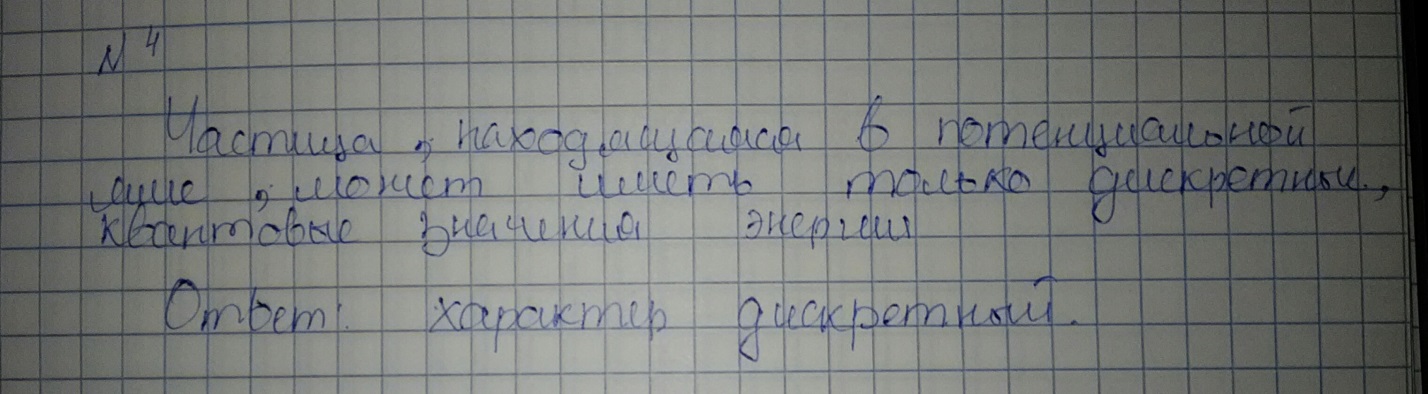 N 4
Частица, находящаяся в потенциальной
яме, может иметь только дискретные,
квантовые значения энергии
Ответ: характер дискретный.